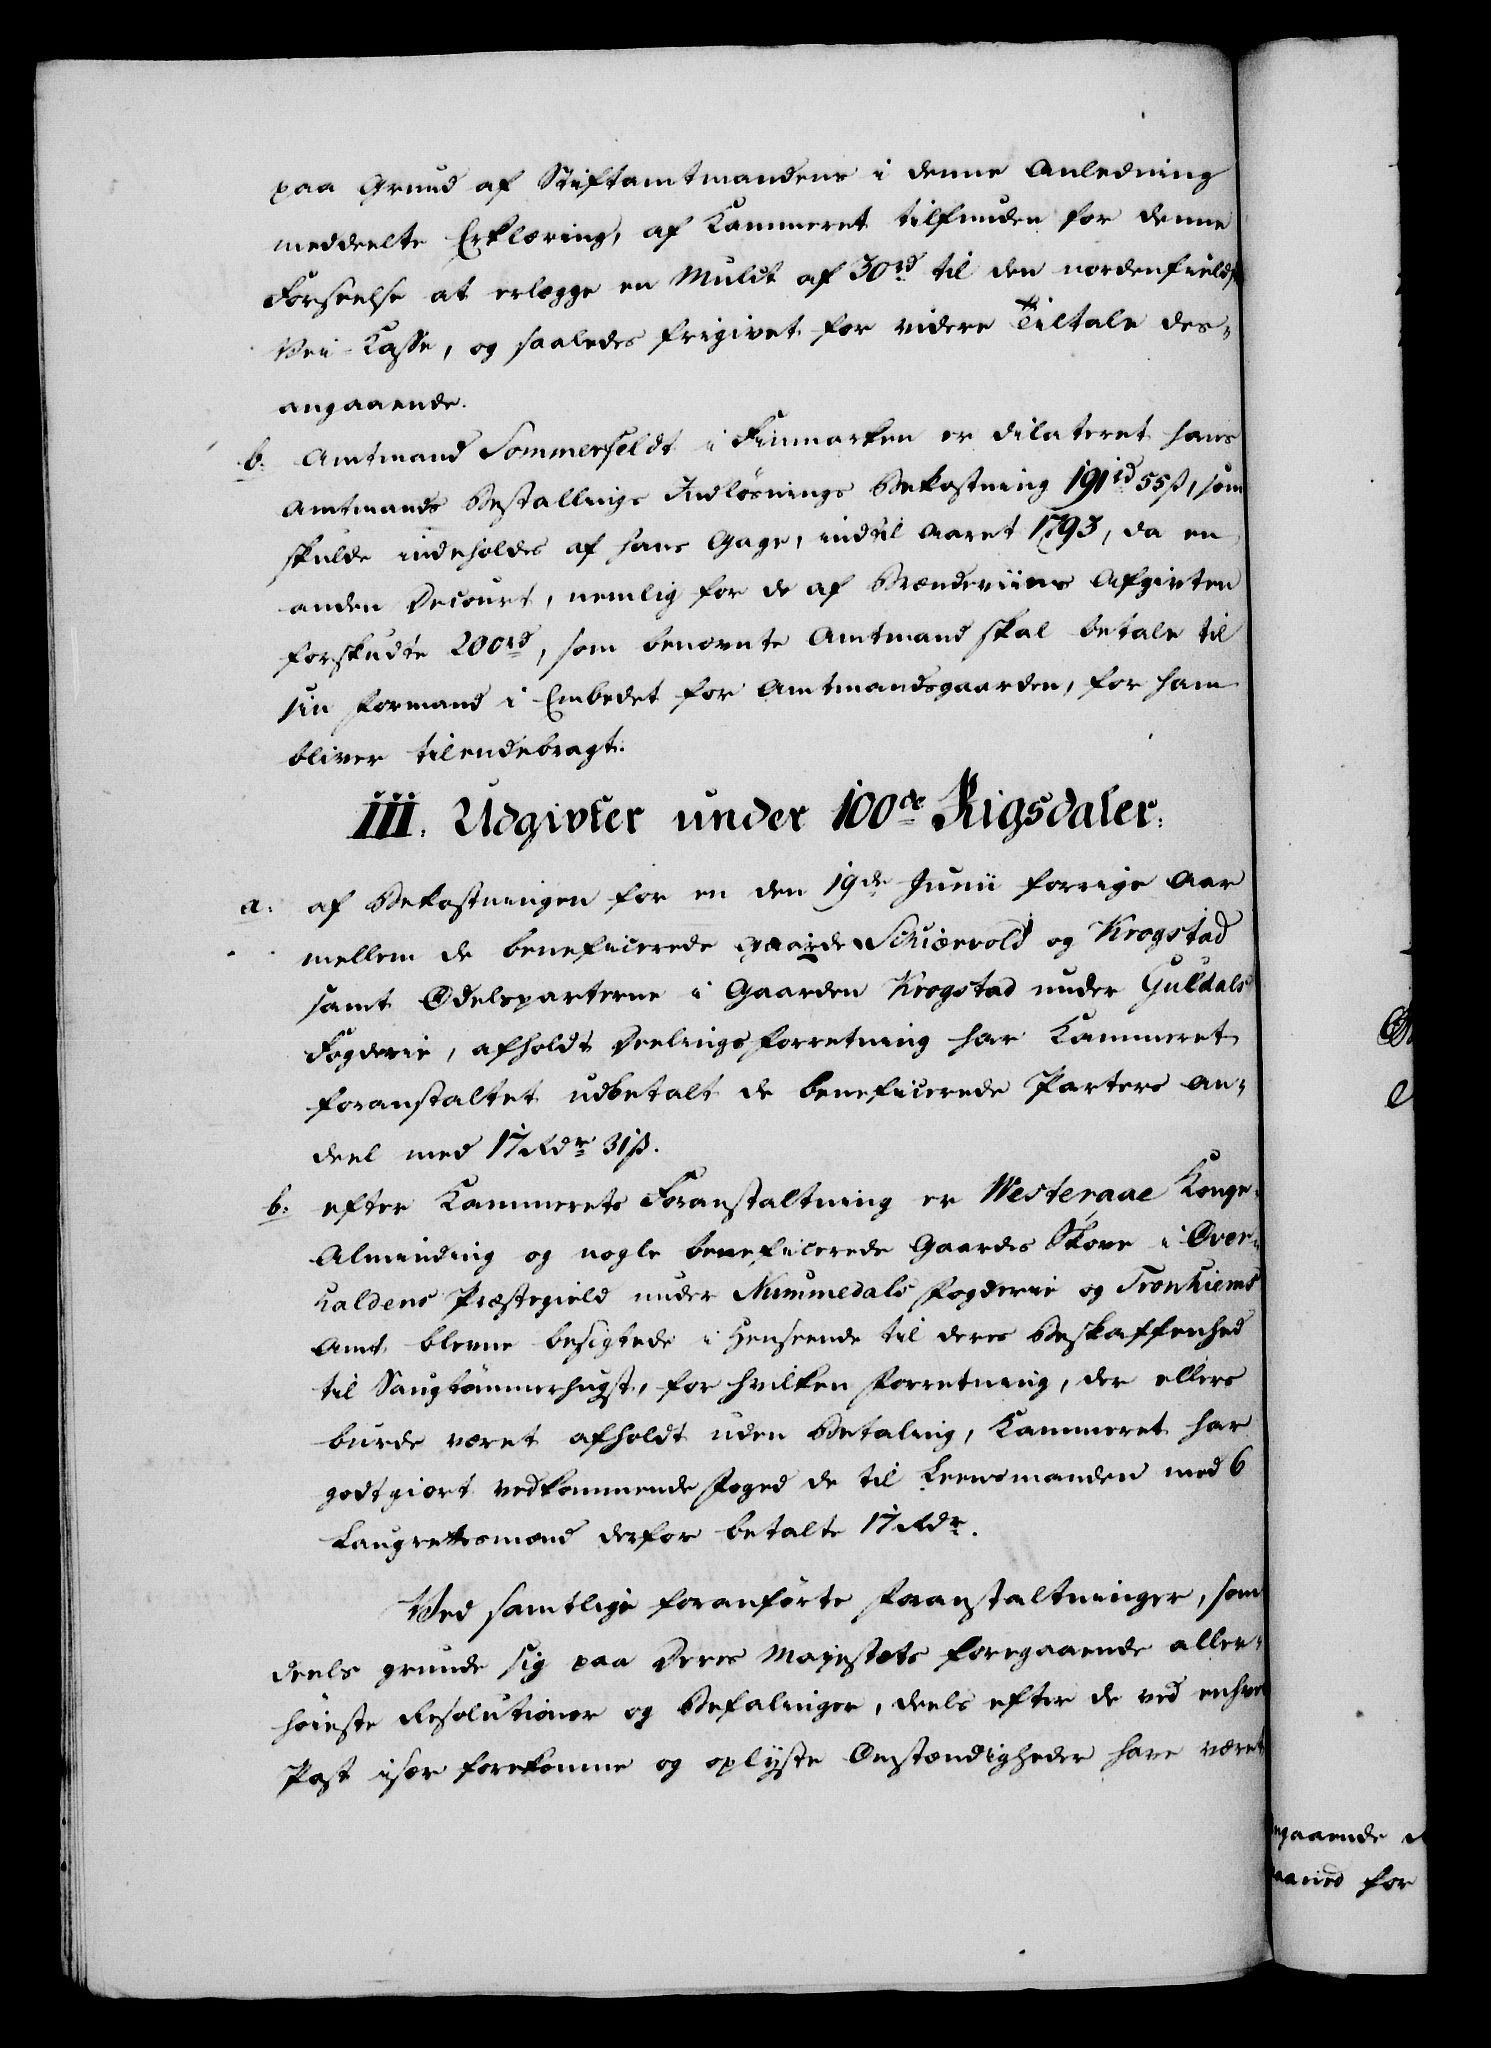 paa Grund af Stiftamtmandens i denne Anledning
meddeelte Erklæring, af Kammeret tilfunden for denne
Forseelse at erlægge en Mulct af 30rd til den nordenfieldske
Vei-Casse, og saaledes frigivet for videre Tiltale des-
angaaende.
b. Amtmand Sommerfeldt i Finmarken er dilateret hans
Amtmands Bestallings Indløsnings Bekostning 191rd 55ß, som
skulde indeholdes af hans Gage, indtil Aaret 1793, da en
anden Decourt, nemlig for de af Brændeviins Afgivten
forskudte 200rd, som benævnte Amtmand skal betale til
sin Formand i Embedet for Amtmandsgaarden, for ham
bliver tilendebragt.
III. Udgivter under 100de Rigsdaler.
a. af Bekostningen for en den 19de Junii forrige Aar
mellem de beneficerede Gaarde Schiærvold og Krogstad
samt Odelsparterne i Gaarden Krogstad under Guldals
Fogderie, afholdt Deelingsforretning har Kammeret
foranstaltet udbetalt de beneficerede Parters An-
deel med 17 Rdr 31ß.
b. efter Kammerets Foranstaltning er Westeraae Konge-
Alminding og nogle beneficerede Gaardes Skove i Over-
haldens Præstegield under Nummedals Fogderie og Tronhiems
Amt blevne besigtede i Henseende til deres Beskaffenhed
til Saugtømmerhugst, for hvilken Forretning, der ellers
burde været afholdt uden Betaling, Kammeret har
godtgiort vedkommende Foged de til Leensmanden med 6
Laugrettesmænd derfor betalte 17 Rdr.
Ved samtlige foranførte Foranstaltninger, som
deels grunde sig paa Deres Majestæts foregaaende aller-
høieste Resolutioner og Befalinger, deels efter de ved enhver
Post især forekomne og oplyste Omstændigheder have været